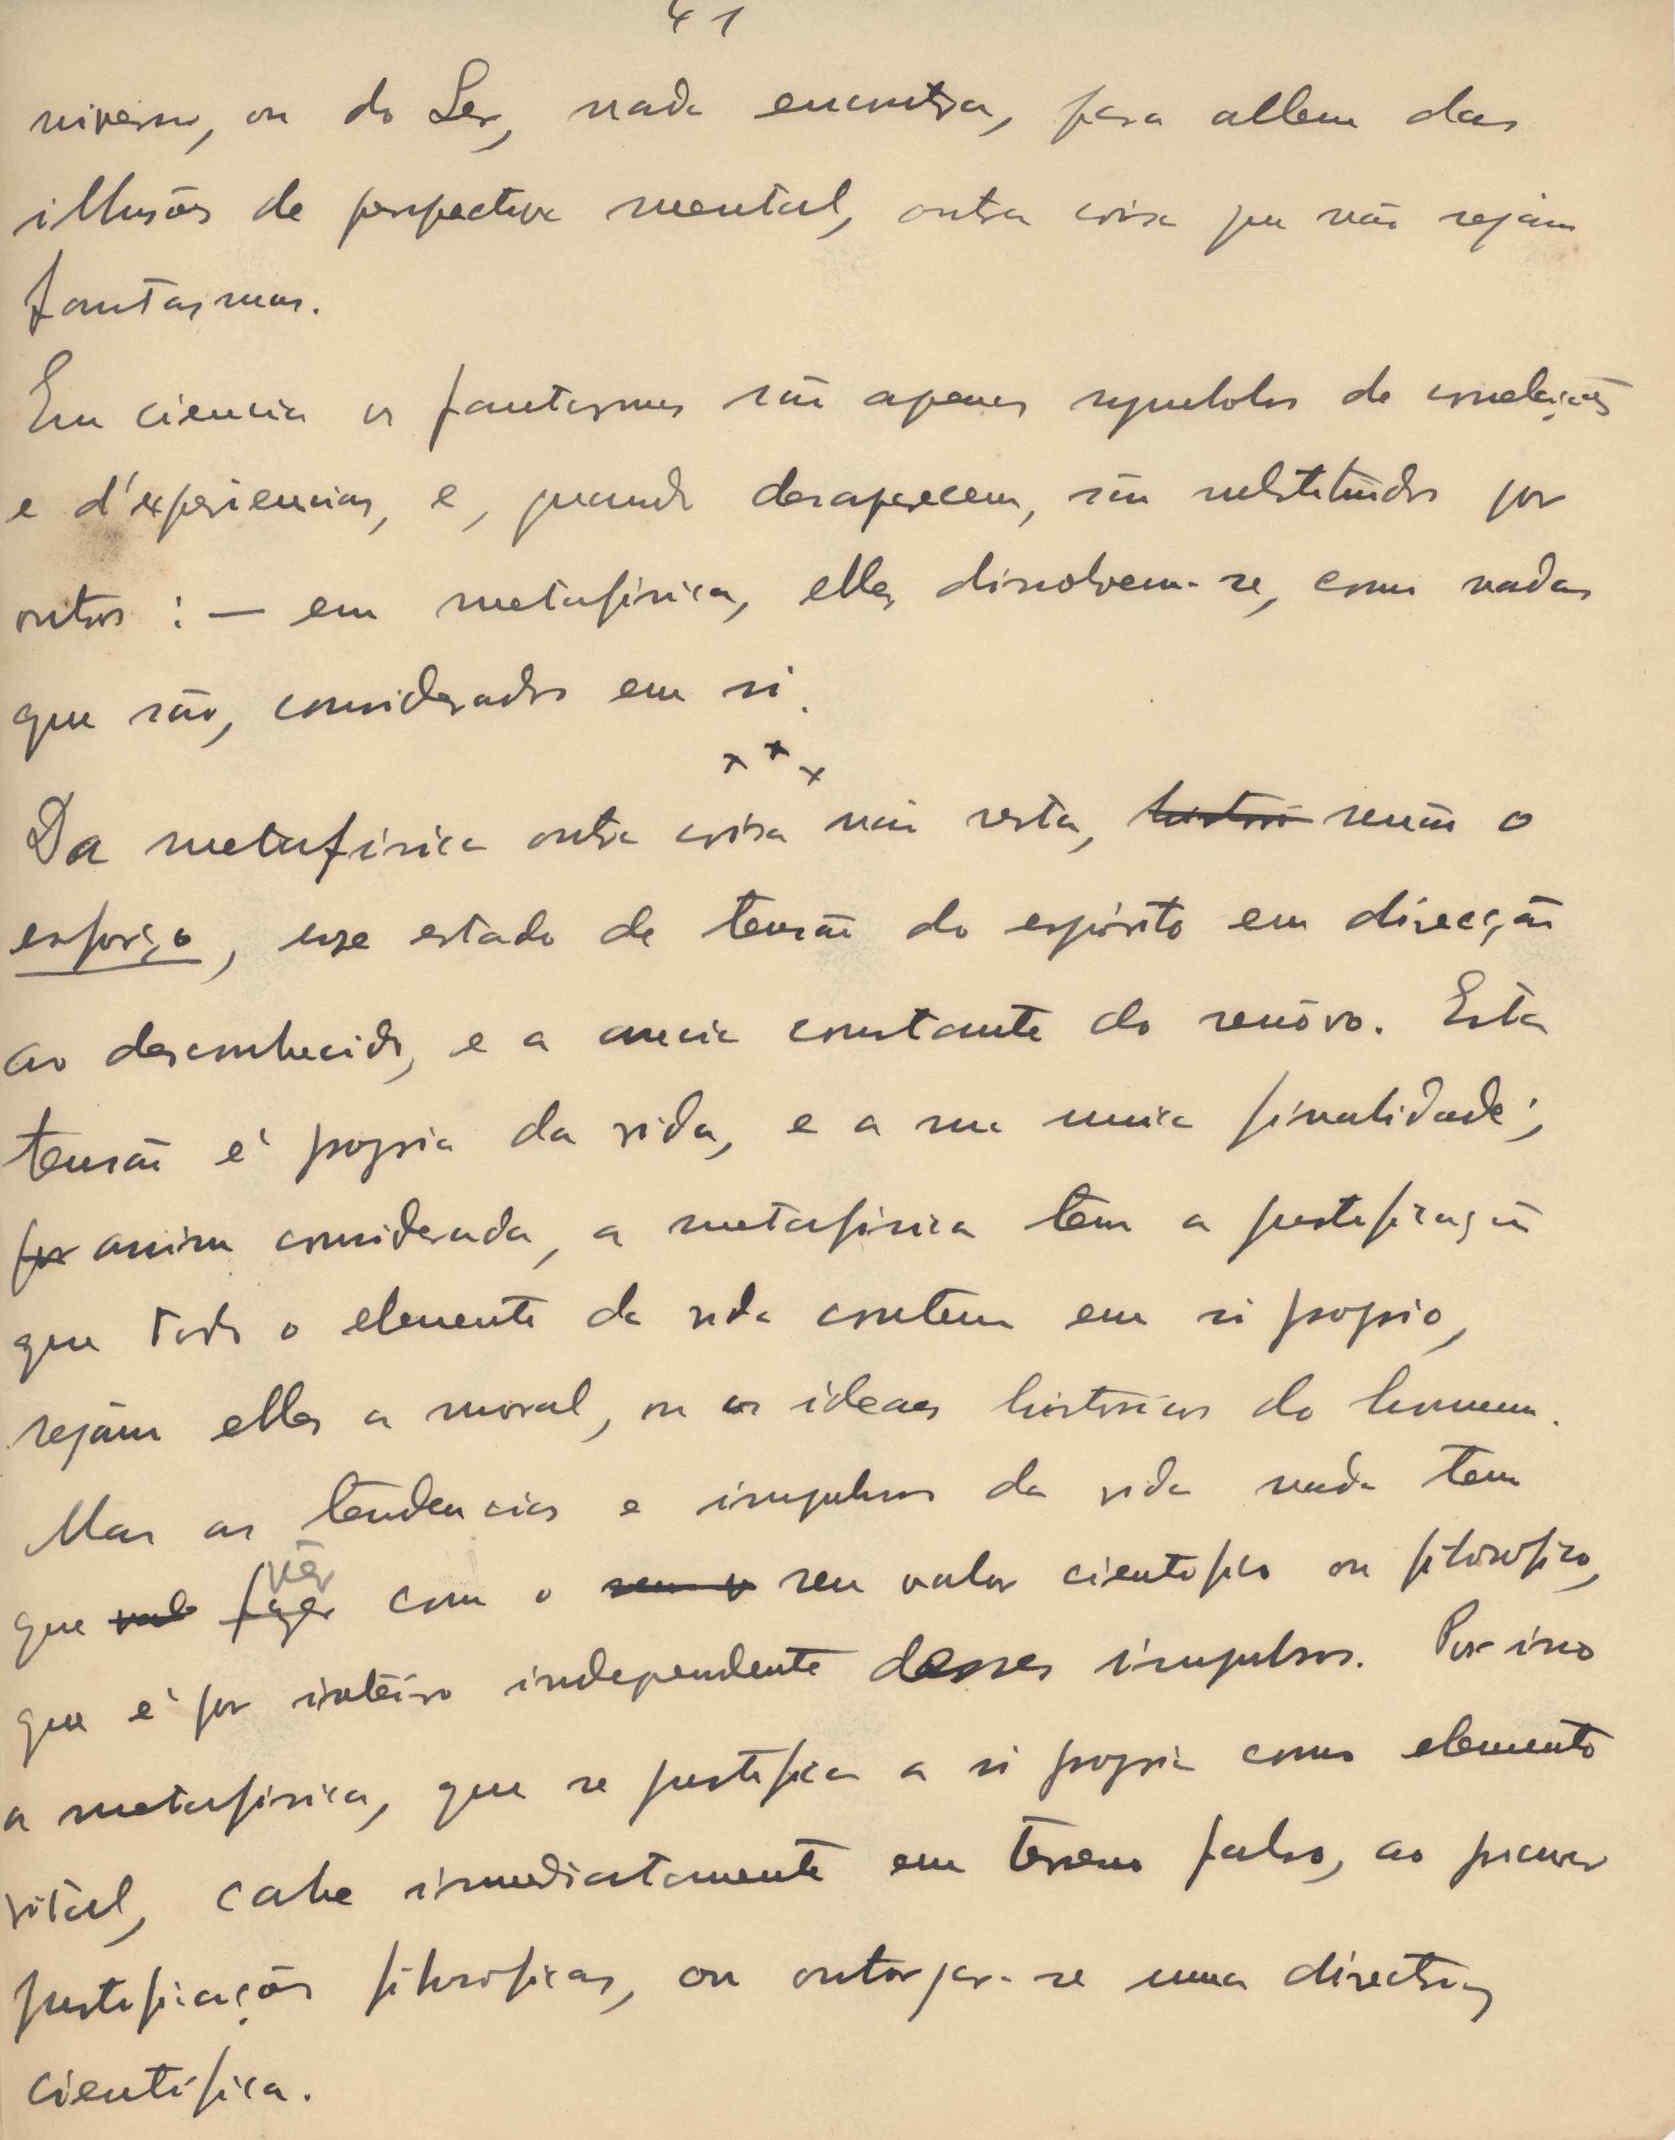 41
niverso, ou do Ser, nada encontra, para allem das
illusões de perspectiva mental, outra coisa que não sejam
fantasmas.
Em ciencia os fantasmas são apenas symbolos de correlações
e d'experiencias, e, quando desaparecem, são substituidos por
outros : — em metafisica, elles dissolvem-se, como nadas
que são, considerados em si.
Da metafisica outra coisa não resta, senão o
esforço, esse estado de tensão do espirito em direcção
ao desconhecido, e a ancia constante do renôvo. Esta
tensão é propria da vida, e a sua unica finalidade;
assim considerada, a metafisica tem a justificação
que todo o elemento da vida contem em si proprio,
sejam elles a moral, ou os ideaes historicos do homem.
Mas as tendencias e impulsos da vida nada tem
que vêr com o seu valor cientifico ou filosofico,
que é por inteiro independente desses impulsos. Por isso
a metafisica, que se justifica a si propria como elemento
vital, cahe immediatamente em terreno falso, ao procurar
justificações filosoficas, ou outorgar-se uma directriz
cientifica.